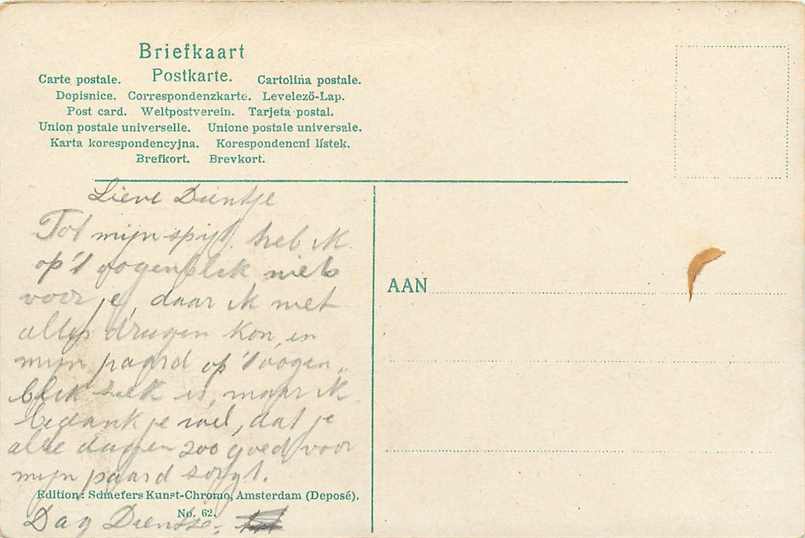 Briefkaart
Postkarte.
Carte postale. Cartolina postale.
Dopisnice. Correspondenzkarte. Levelező-Lap.
Post card. Weltpostverein. Tarjeta postal.
Union postale universelle. Unione postale universale.
Karta korespondencyjna. Korespondencni lístek.
Brefkort. Brevkort.
Lieve Dientje
Tot mijn spijt heb ik
op 't oogenblik niets
voor je, daar ik niet
alles dragen kon, en
mijn paard op 't oogen„
blik ziek is, maar ik
bedank je wel, dat je
alle dagen zoo goed voor
mijn paard zorgt.
Edition: Schaefers Kunst-Chromo, Amsterdam (Deposé).
No. 62.
Dag Dientje.
AAN